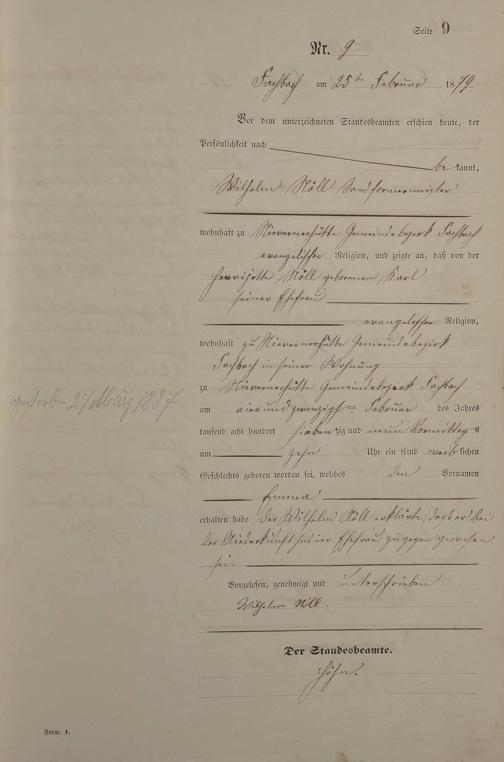 Seite 9
Nr. 9
Fachbach am 25ten Februar 1879.
Vor dem unterzeichneten Standesbeamten erschien heute, der
Persönlichkeit nach
be kannt,
Wilhelm Nöll Sandformermeister
wohnhaft zu Nievernerhütte Gemeindebezirk Fachbach
evangelischer Religion, und zeigte an, daß von der
Henriette Nöll geborenen Karl
seiner Ehefrau
evangelischer Religion,
wohnhaft zu Nievernerhütte Gemeindebezirk
Fachbach in seiner Wohnung
zu Nievernerhütte Gemeindebezirk Fachbach
gestorben 27 März 1887
am Februar des Jahres
tausend acht hundert sieben zig und neun Vormittag s
um zehn Uhr ein Kind weiblichen
Geschlechts geboren worden sei, welches den Vornamen
Emma
erhalten habe der Wilhelm Nöll erklärte, daß er bei
der Niederkunft seiner Ehefrau zugegen gewesen
sei.
Vorgelesen, genehmigt und unterschrieben
Wilhelm Nöll.
Der Standesbeamte.
Höhn.
Form. A.